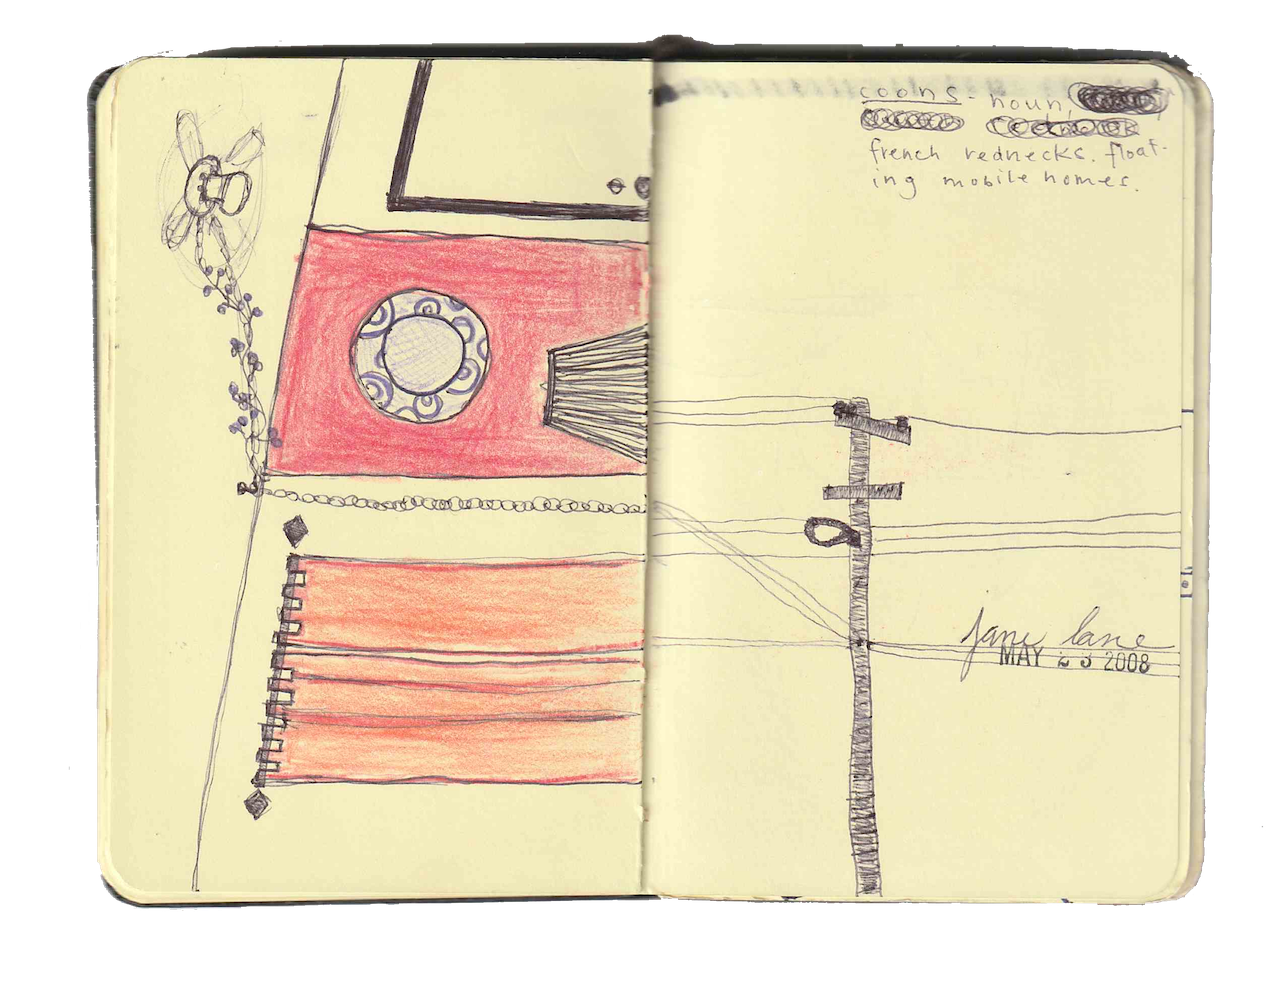 coons - noun,
french rednecks. float-
ing mobile homes.
jane lane
MAY 23 2008